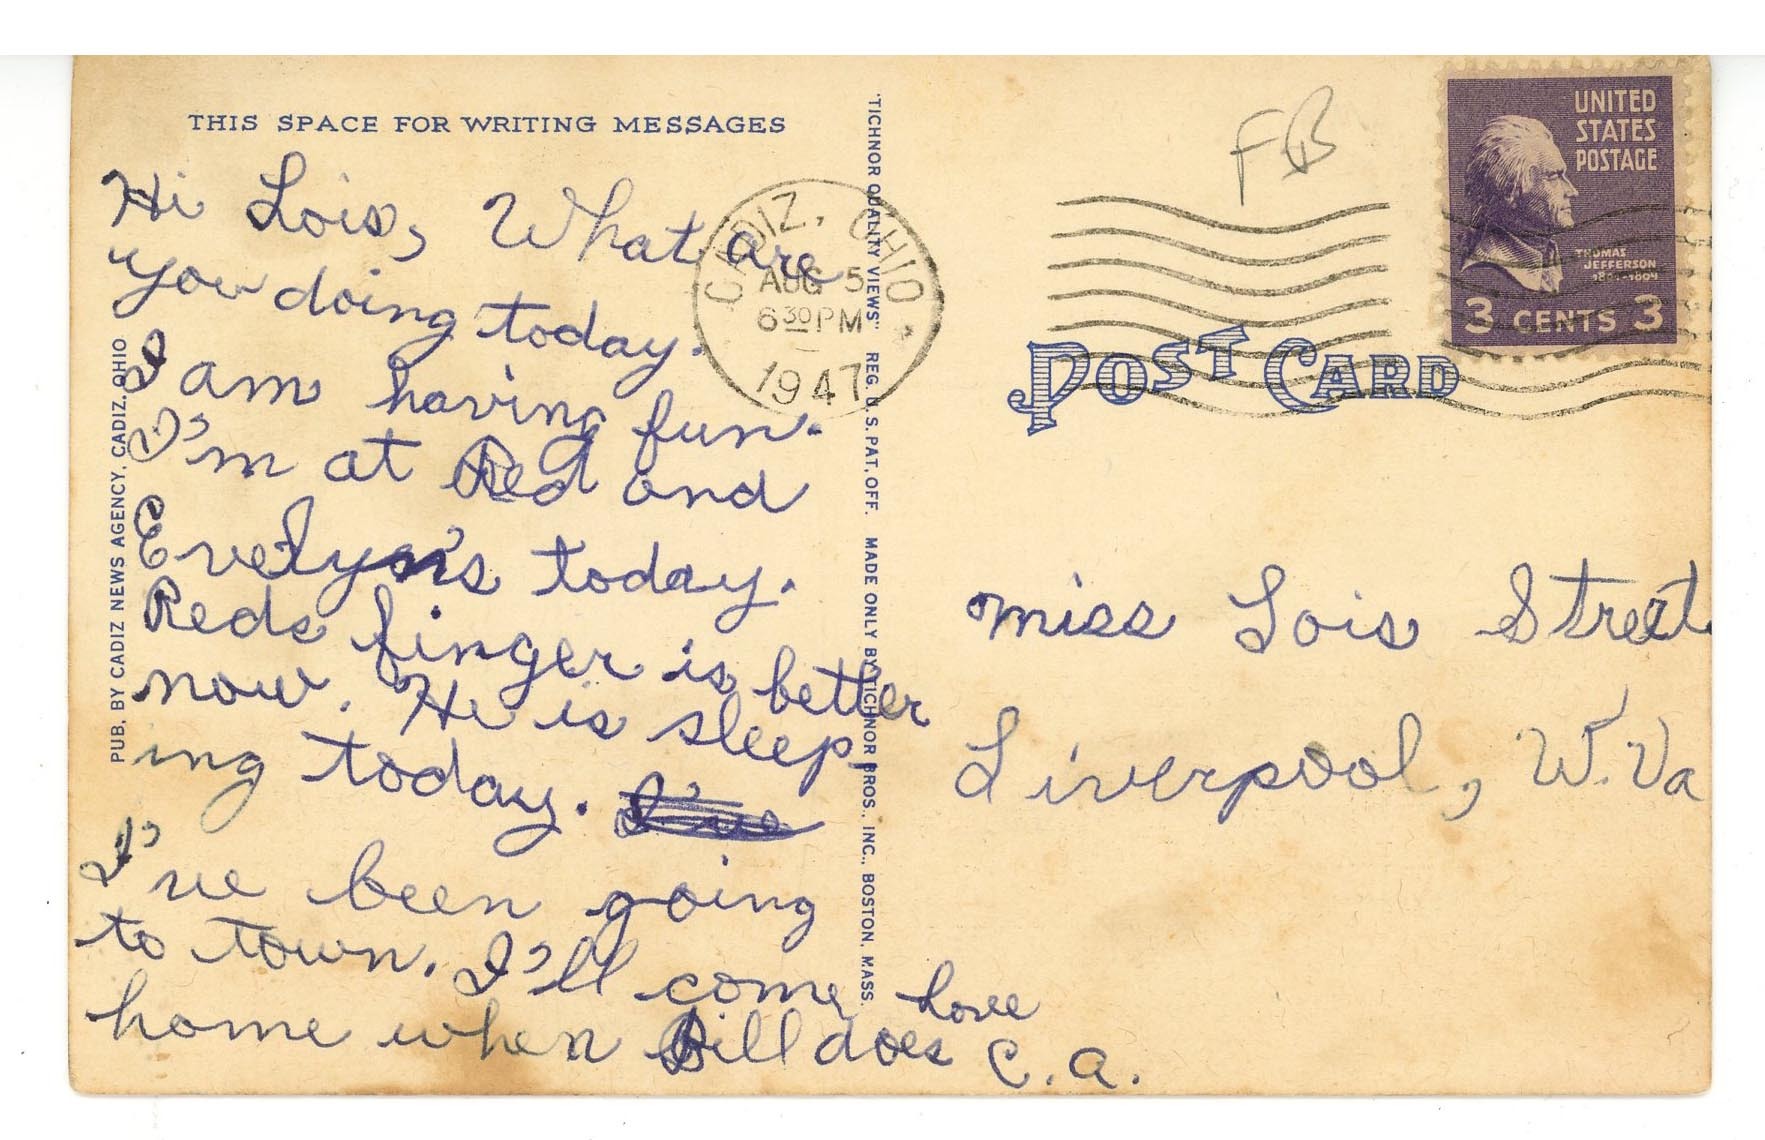 THIS SPACE FOR WRITING MESSAGES
Hi Lois, What are
you doing today.
I am having fun.
I'm at Red and
Evelyn's today.
Reds finger is better
now. He is sleep
ing today. I've
I've been going
to town. I'll come
home when Bill does
love
C. A.
PUB. BY CADIZ NEWS AGENCY, CADIZ, OHIO
"TICHNOR QUALITY VIEWS" REG. U. S. PAT. OFF. MADE ONLY BY TICHNOR BROS., INC., BOSTON, MASS.
CADIZ, OHIO
AUG 5
6 30 PM
1947
FB
UNITED
STATES
POSTAGE
THOMAS
JEFFERSON
1801-1809
3 CENTS 3
POST CARD
Miss Lois Street
Liverpool, W. Va